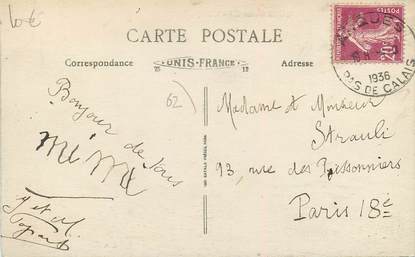 CARTE POSTALE
Correspondance
UNIS-FRANCE
Adresse
20c
1936
PAS DE CALAIS
62
Bonjour de nous
mimi
Madame et Monsieur
Strauli
93, rue des Poissonniers
Paris 18e